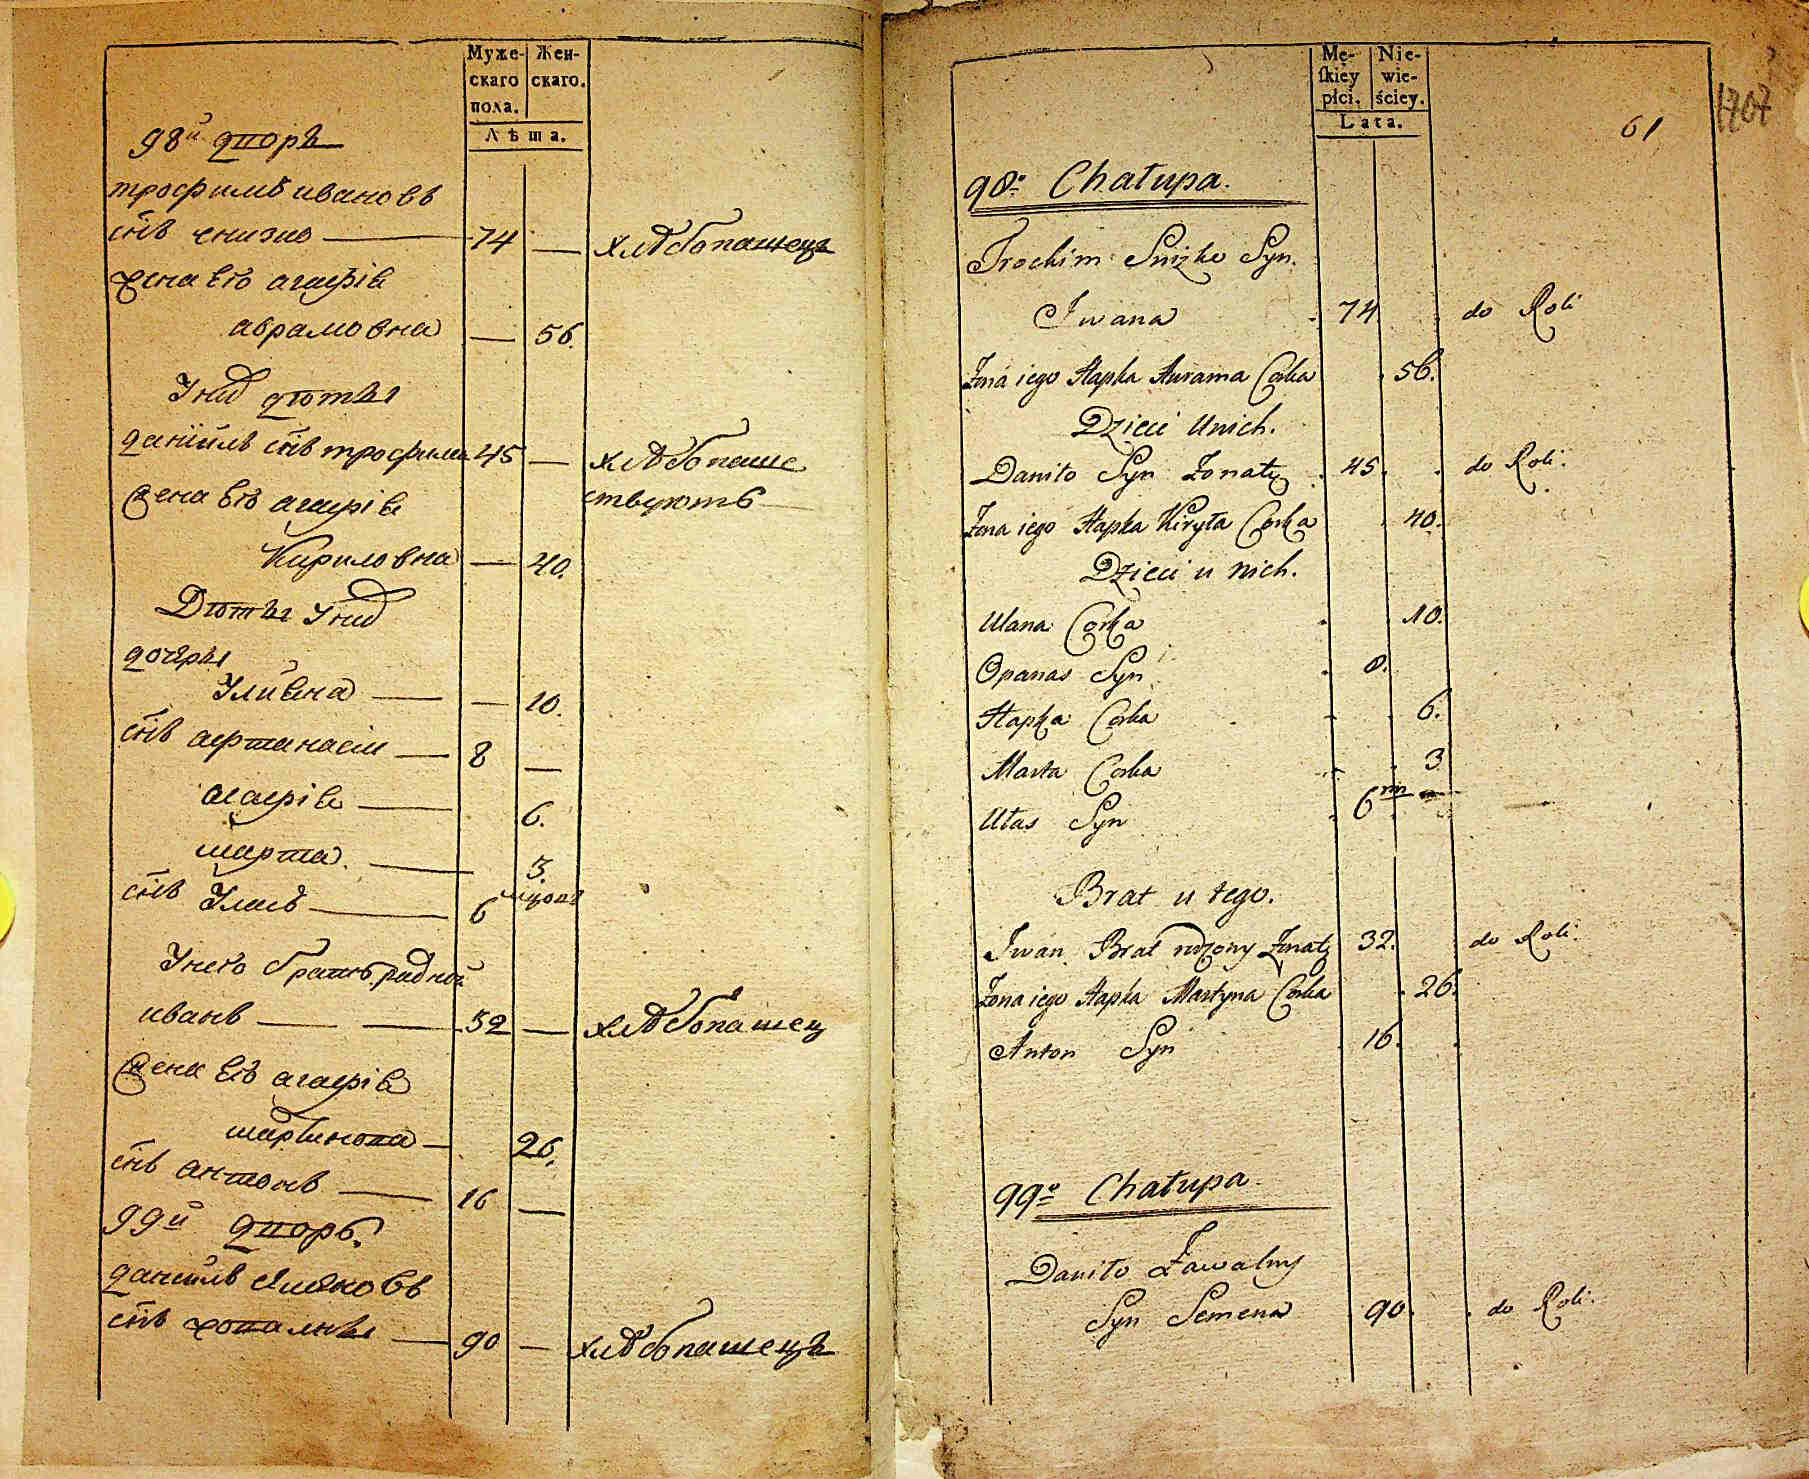 Муже-
скаго
пола.
Жен-
скаго.
Лѣта.
98й дворъ
трофимъ ивановъ
снъ снизко 74 — хлѣбопашецъ
жена его агафія
абрамовна — 56.
У нихъ дѣти
даніилъ снъ трофима 45 — хлѣбопаше
ствуютъ
жена его агафія
Кириловна — 40.
Дѣти У нихъ
дочеры
Улияна — 10.
снъ афтанасіи 8 —
агафія 6.
марта 3.
снъ Уласъ 6 мцовъ
У него братъ радной
иванъ 32 — хлѣбопашец
жена его агафія
мартинова 26.
снъ антонъ 16 —
99й дворъ
даниилъ
снъ 90 — хлѣбопашецъ
Mę-
skiey
płci.
Nie-
wie-
ściey.
Lata.
61
1707
98a Chałupa.
Trochim Snizko Syn
Iwana 74 do Roli
Zona iego Hapka Awrama Corka 56.
Dzieci u nich.
Daniło Syn Zonaty 45. do Roli.
Zona iego Hapka Kiryła Corka 40.
Dzieci u nich.
Ulana Corka 10.
Opanas Syn 8.
Hapka Corka 6.
Marta Corka 3
Ułas Syn 6 m
Brat u tego.
Iwan Brat rodzony Zonaty 32. do Roli.
Zona iego Hapka Martyna Corka 26.
Anton Syn 16.
99a Chałupa.
Daniło Zawalny
Syn Semena 90. do Roli.